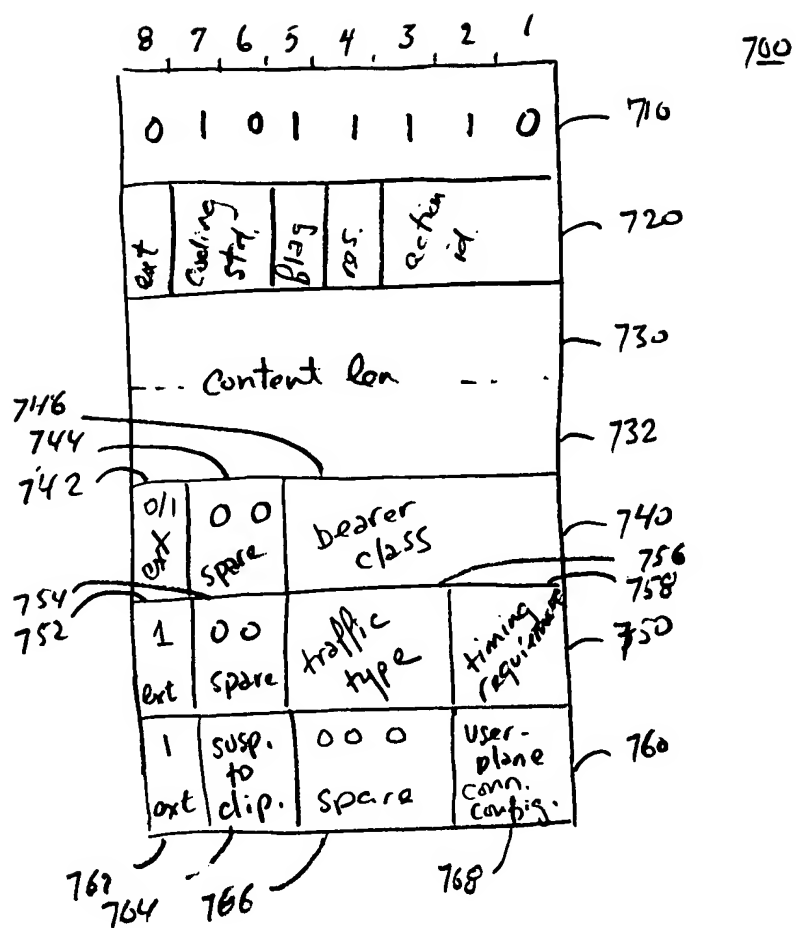 8 7 6 5 4 3 2 1
700
0 1 0 1 1 1 1 0
710
ext
Coding
std.
flag
res.
action
id.
720
730
--- Content len - - -
746
744
742
732
0/1
ext
0 0
spare
bearer
class
740
756
758
754
752
1
ext
0 0
spare
traffic
type
timing
requirements
750
1
ext
susp.
to
clip.
0 0 0
spare
user-
plane
conn.
config.
760
762
764
766
768